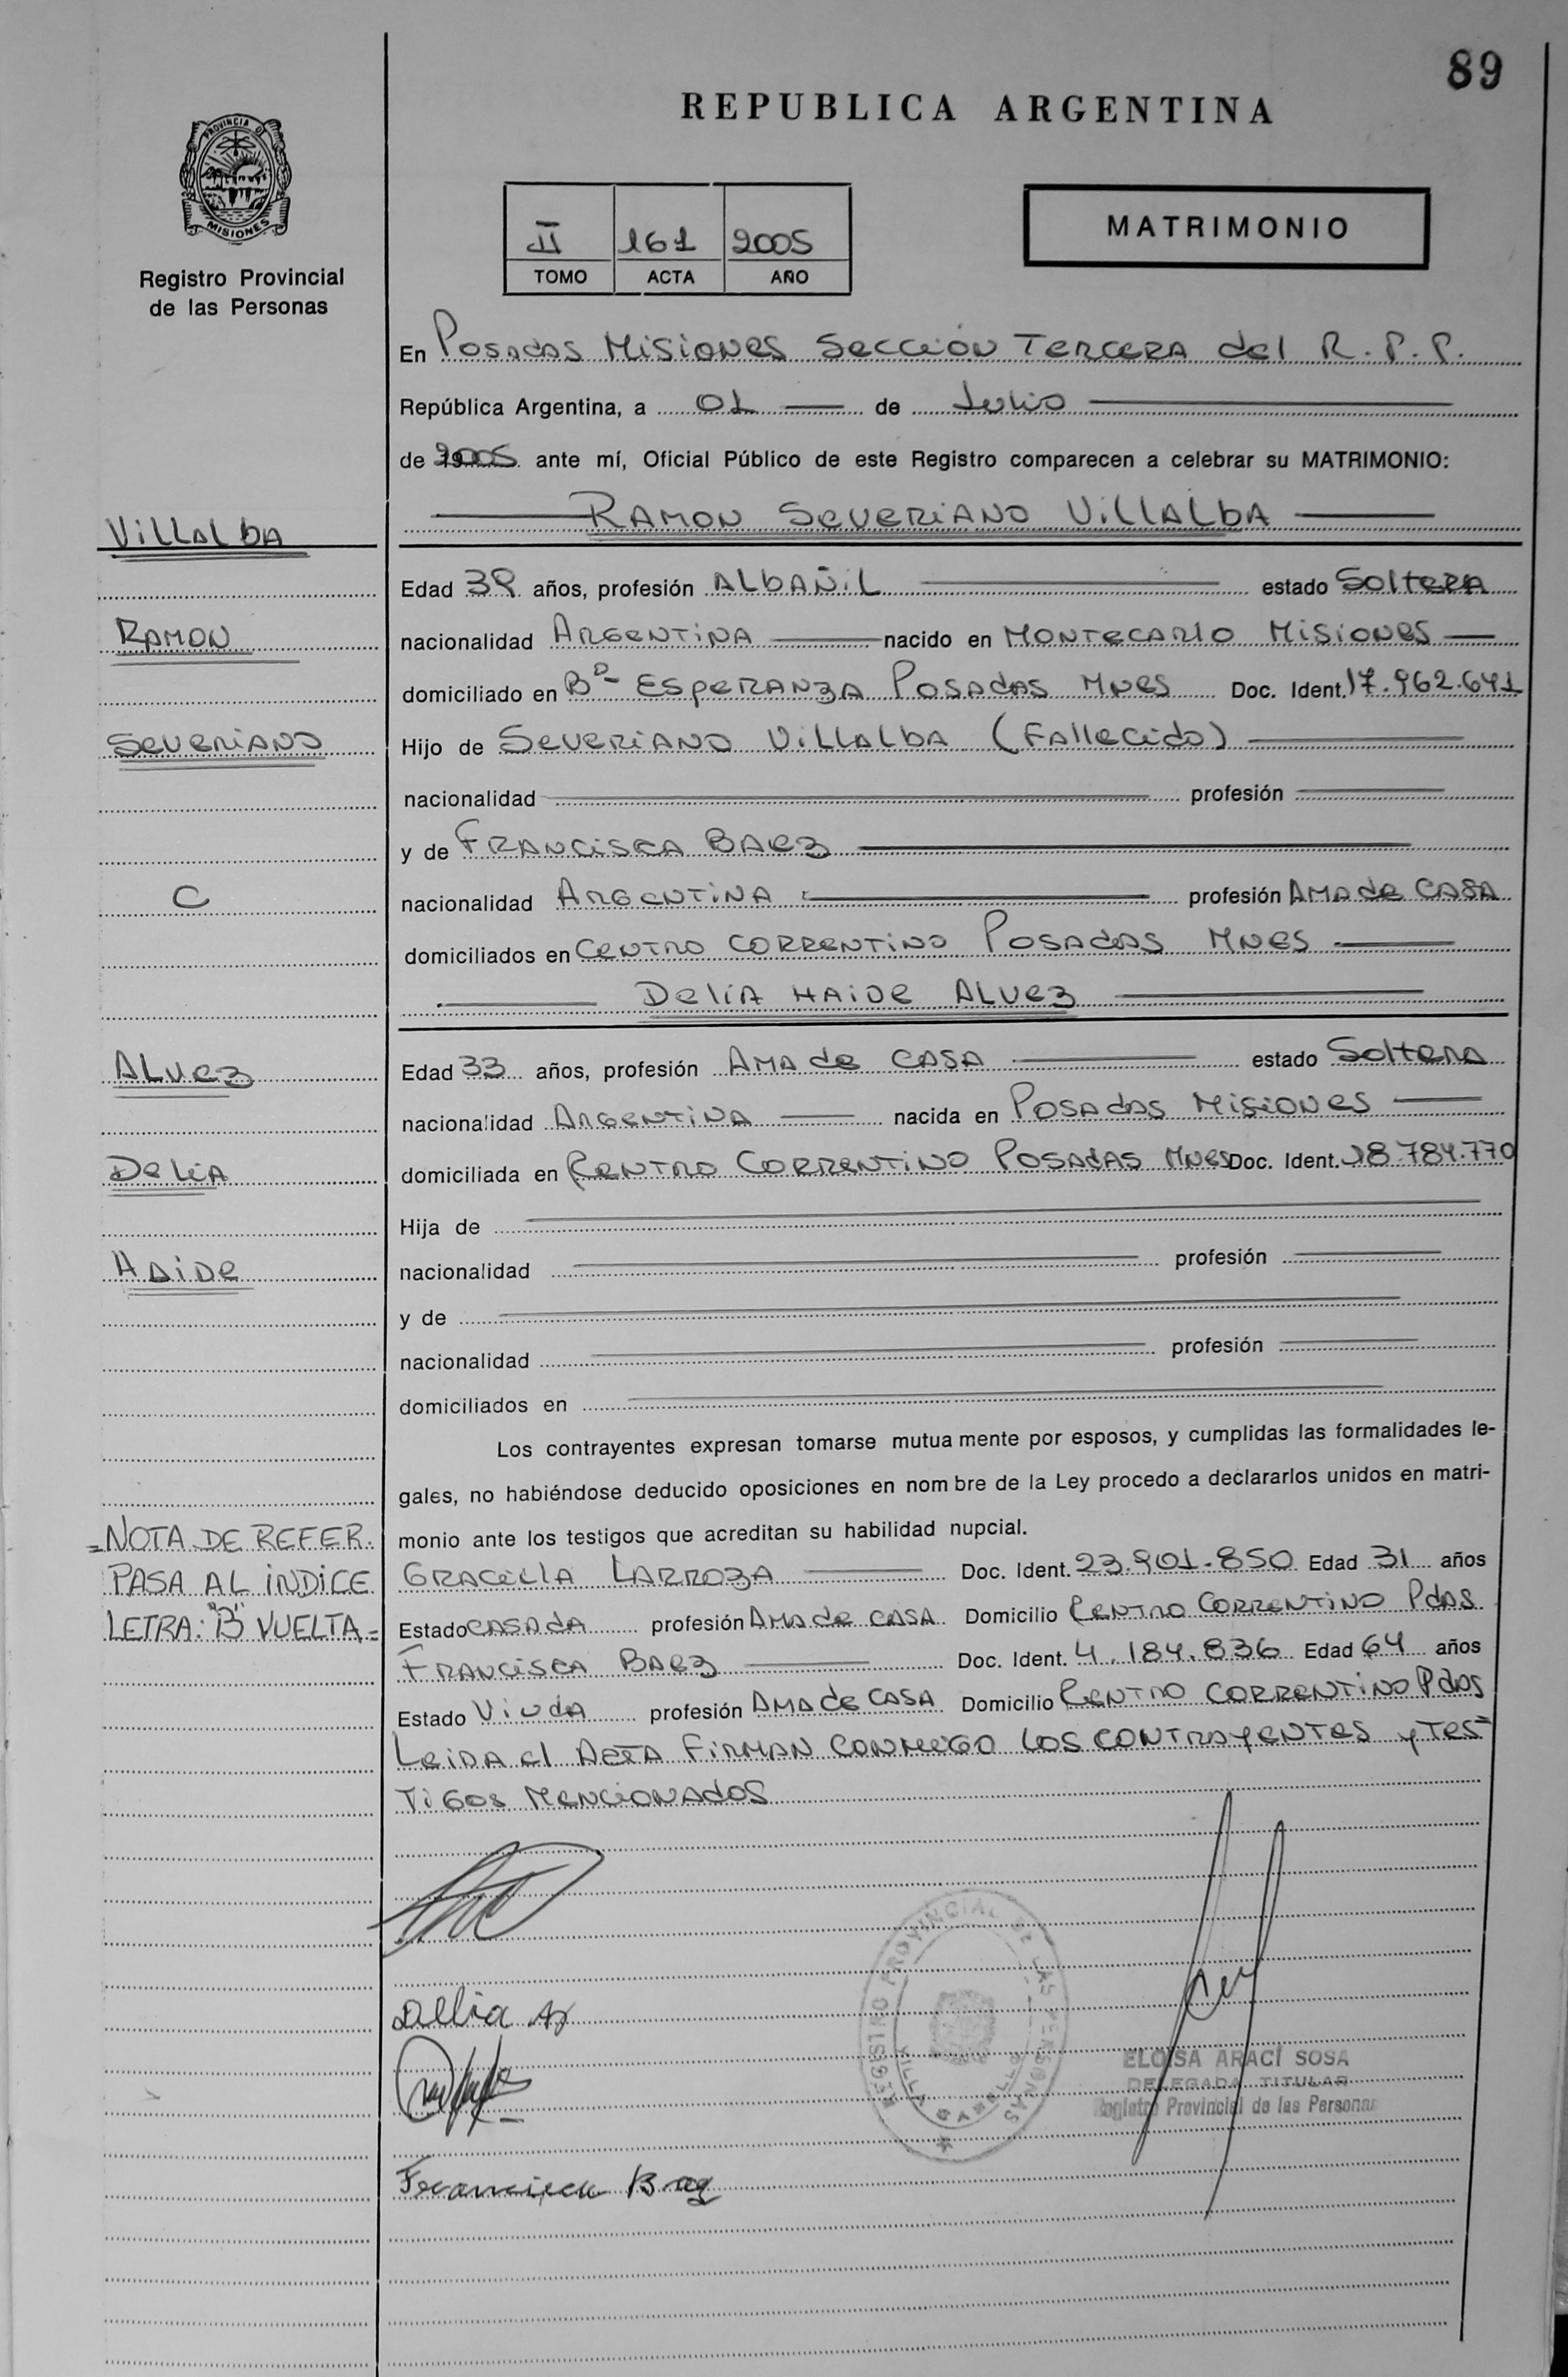 89
REPUBLICA ARGENTINA
PROVINCIA DE
MISIONES
Registro Provincial
de las Personas
II 161 2005
TOMO ACTA AÑO
MATRIMONIO
En Posadas Misiones Sección Tercera del R.P.P.
República Argentina, a 01 de Julio
de 2005 ante mí, Oficial Público de este Registro comparecen a celebrar su MATRIMONIO:
Villalba
Ramon Severiano Villalba
Edad 39 años, profesión Albañil estado Soltera
Ramon
nacionalidad Argentina nacido en Montecarlo Misiones
domiciliado en Bº Esperanza Posadas Mnes Doc. Ident. 17.962.641
Severiano
Hijo de Severiano Villalba (Fallecido)
nacionalidad profesión
y de Francisca Baez
C
nacionalidad Argentina profesión Ama de casa
domiciliados en Centro Correntino Posadas Mnes
Delia Haide Alvez
Alvez
Edad 33 años, profesión Ama de casa estado Soltera
nacionalidad Argentina nacida en Posadas Misiones
Delia
domiciliada en Centro Correntino Posadas Mnes Doc. Ident. 18.784.770
Hija de
Haide
nacionalidad profesión
y de
nacionalidad profesión
domiciliados en
Los contrayentes expresan tomarse mutua mente por esposos, y cumplidas las formalidades le-
gales, no habiéndose deducido oposiciones en nom bre de la Ley procedo a declararlos unidos en matri-
monio ante los testigos que acreditan su habilidad nupcial.
=NOTA DE REFER.
PASA AL INDICE
LETRA: "B" VUELTA=
Graciela Larroza Doc. Ident. 23.901.850 Edad 31 años
Estado casada profesión Ama de casa Domicilio Centro Correntino Pdas
Francisca Baez Doc. Ident. 4.184.836 Edad 64 años
Estado Viuda profesión Ama de casa Domicilio Centro Correntino Pdas
Leida el Acta firman conmigo los contrayentes y tes=
tigos mencionados
REGISTRO PROVINCIAL DE LAS PERSONAS
VILLA CABELLO
Delia
ELOISA ARACÍ SOSA
DELEGADA TITULAR
Registro Provincial de las Personas
Francisca Baez